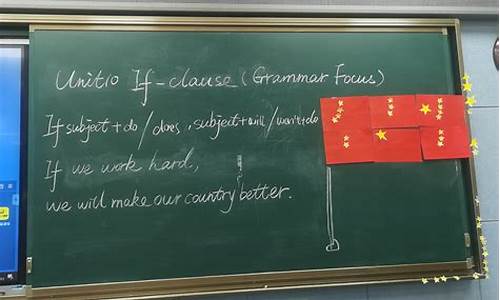 Unit10 If-clause (Grammar Focus)
If subject + do / does , subject + will / won't + do
If we work hard,
we will make our country better.